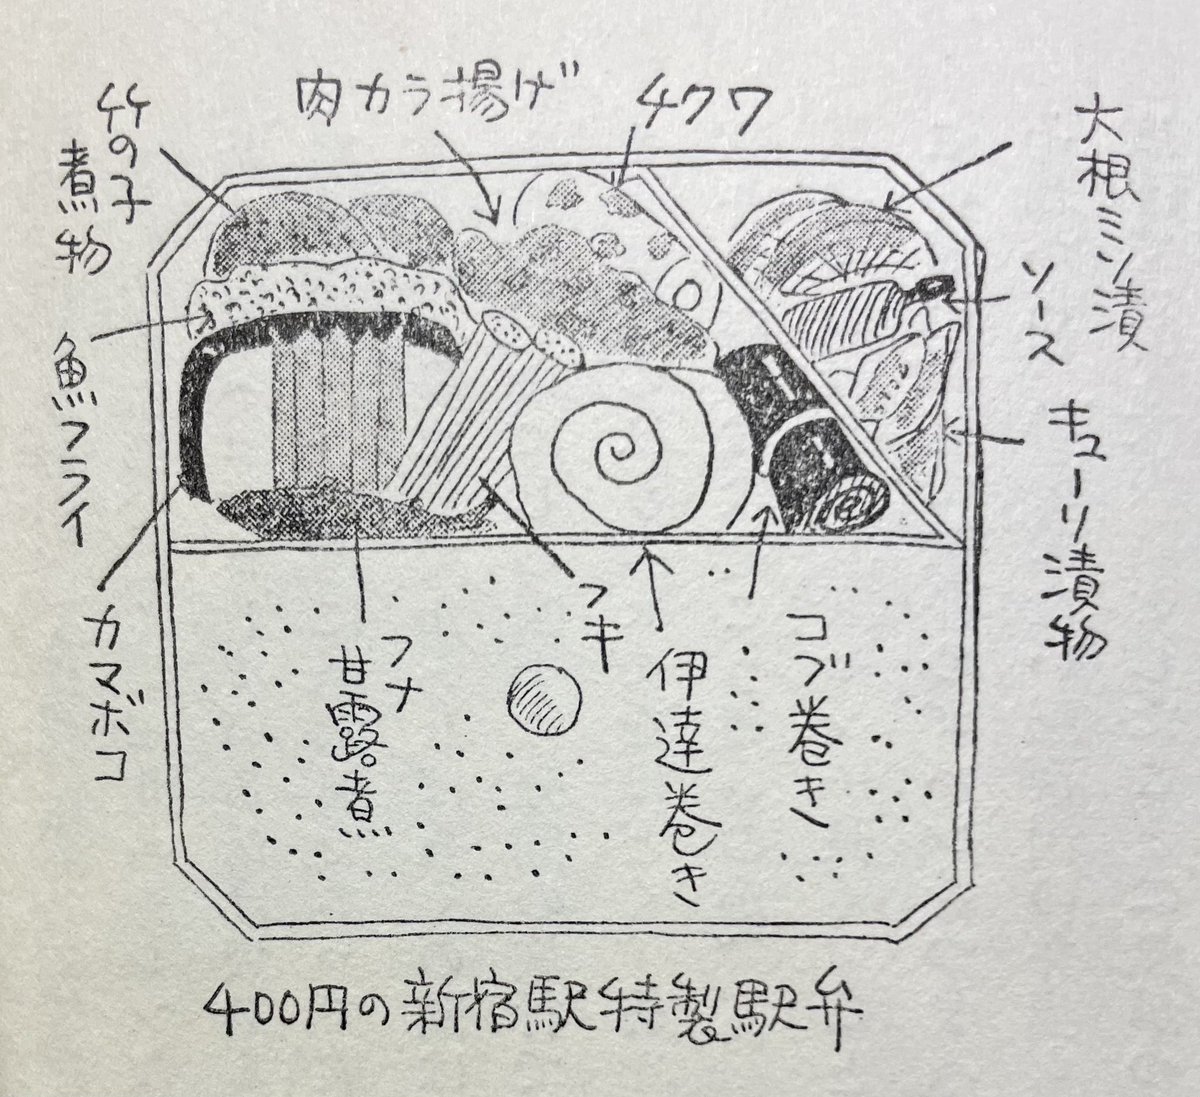 竹の子
煮物
肉カラ揚げ
チクワ
大根ミソ漬
ソース
キューリ漬物
魚フライ
カマボコ
フナ
甘露煮
フキ
伊達巻き
コブ巻き
400円の新宿駅特製駅弁